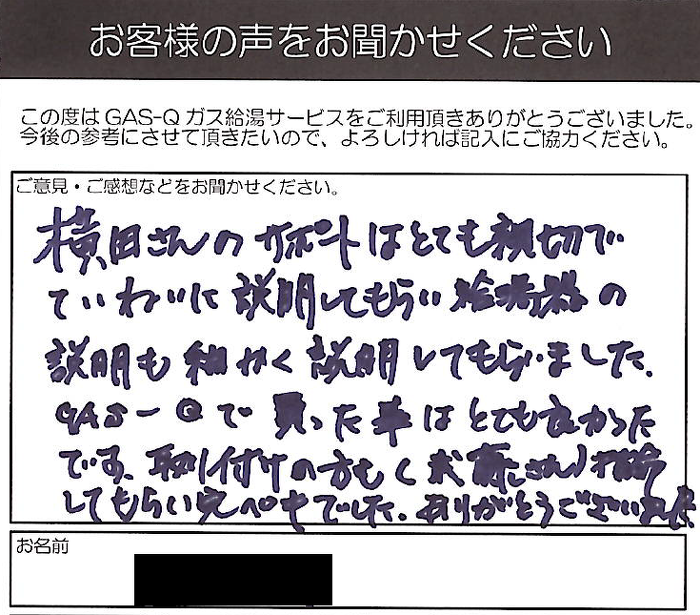 お客様の声をお聞かせください
この度はGAS-Qガス給湯サービスをご利用頂きありがとうございました。
今後の参考にさせて頂きたいので、よろしければ記入にご協力ください。
ご意見・ご感想などをお聞かせください。
横田さんのサポートはとても親切で
ていねいに説明してもらい給湯器の
説明も細かく説明してもらいました。
GAS-Qで買った事はとても良かった
です。取り付けの方も
してもらい完ペキでした。ありがとうござい
お名前